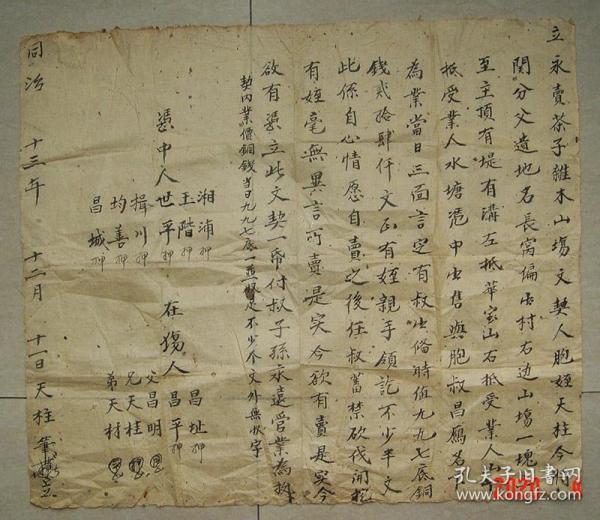 立永賣茶子雜木山塲文契人胞姪天柱今將
閗分父遺地名長窩偏出村右边山塲一塊
至主頂有堤有溝左抵華家山右抵受業人山
抵受業人水塘凴中出售與胞叔昌鴈名下
為業當日三面言定有叔出俻時值九九七底銅
錢貳拾肆仟文正有姪親手領訖不少半文
此係自心情愿自賣之後任叔蓄禁砍伐開挖
有姪毫無異言所賣是实今欲有賣是实今
欲有凴立此文契一帋付叔子孫永遠營業為執
契内業價銅錢當日九九七底一並收足不少个文外無收字
湘浦押
玉階押
憑中人世平押
揖川押
均善押
昌城押
在塲人
昌址押
昌平押
父昌明
兄天桂
弟天材
同治 十三年 十二月 十一日天柱筆立
孔夫子旧书网
www.kongfz.com
2020